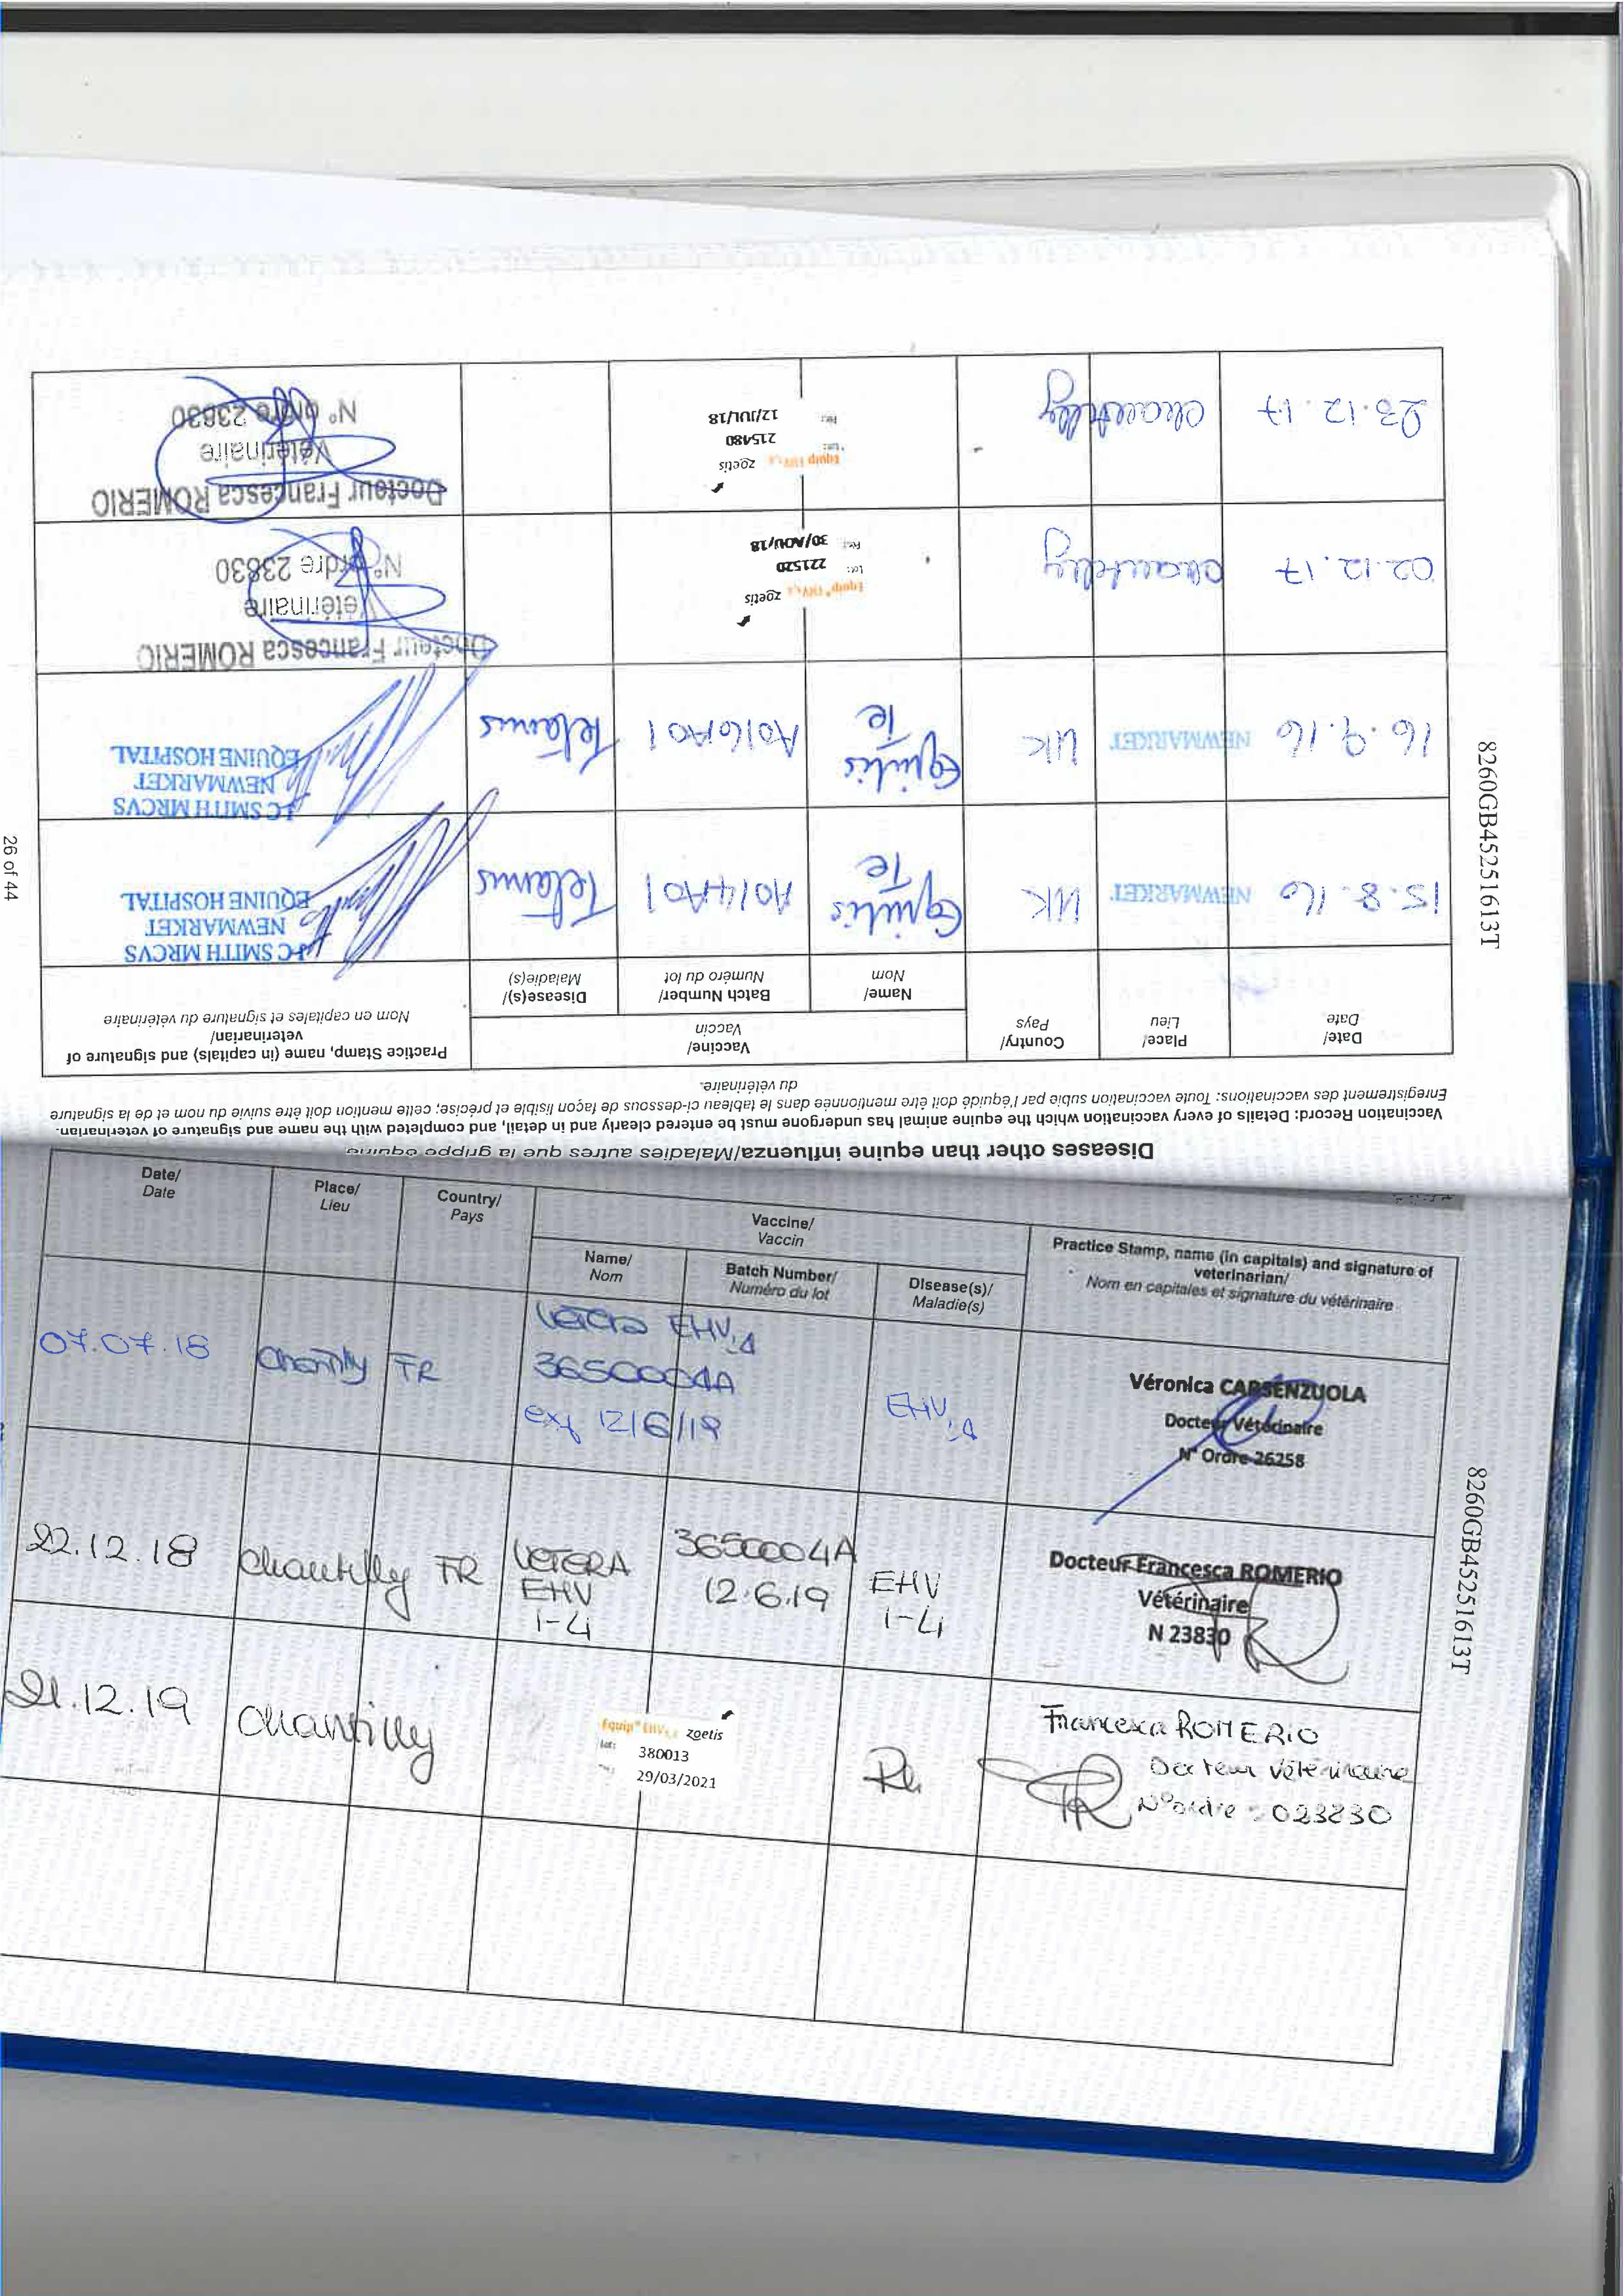 Diseases other than equine influenza/Maladies autres que la grippe équine
Vaccination Record: Details of every vaccination which the equine animal has undergone must be entered clearly and in detail, and completed with the name and signature of veterinarian.
Enregistrement des vaccinations: Toute vaccination subie par l'équidé doit être mentionnée dans le tableau ci-dessous de façon lisible et précise; cette mention doit être suivie du nom et de la signature
du vétérinaire.
Date/
Date
Place/
Lieu
Country/
Pays
Vaccine/
Vaccin
Name/
Nom
Batch Number/
Numéro du lot
Disease(s)/
Maladie(s)
Practice Stamp, name (in capitals) and signature of
veterinarian/
Nom en capitales et signature du vétérinaire
15.8.16
NEWMARKET
UK
Equilis
Te
A014A01
Tetanus
J C SMITH MRCVS
NEWMARKET
EQUINE HOSPITAL
16.9.16
NEWMARKET
UK
Equilis
Te
A016A01
Tetanus
J C SMITH MRCVS
NEWMARKET
EQUINE HOSPITAL
02.12.17
Chantilly
Equip® EHV1,4 zoetis
Lot: 221520
Per.: 30/AOU/18
Docteur Francesca ROMERIO
Vétérinaire
N° ordre 23830
23.12.17
Chantilly
Equip EHV1,4 zoetis
Lot: 215480
Per.: 12/JUL/18
Docteur Francesca ROMERIO
Vétérinaire
N° ordre 23830
8260GB45251613T
26 of 44
Date/
Date
Place/
Lieu
Country/
Pays
Vaccine/
Vaccin
Name/
Nom
Batch Number/
Numéro du lot
Disease(s)/
Maladie(s)
Practice Stamp, name (in capitals) and signature of
veterinarian/
Nom en capitales et signature du vétérinaire
07.07.18
Chantilly
FR
Vetera EHV1,4
3650004A
exp 12/6/19
EHV1,4
Véronica CARSENZUOLA
Docteur Vétérinaire
N° Ordre 26258
22.12.18
Chantilly
FR
VETERA
EHV
1-4
3650004A
12.6.19
EHV
1-4
Docteur Francesca ROMERIO
Vétérinaire
N 23830
21.12.19
Chantilly
Equip® EHV1,4 zoetis
Lot: 380013
29/03/2021
Francesca ROMERIO
Docteur vétérinaire
N° ordre : 023830
8260GB45251613T